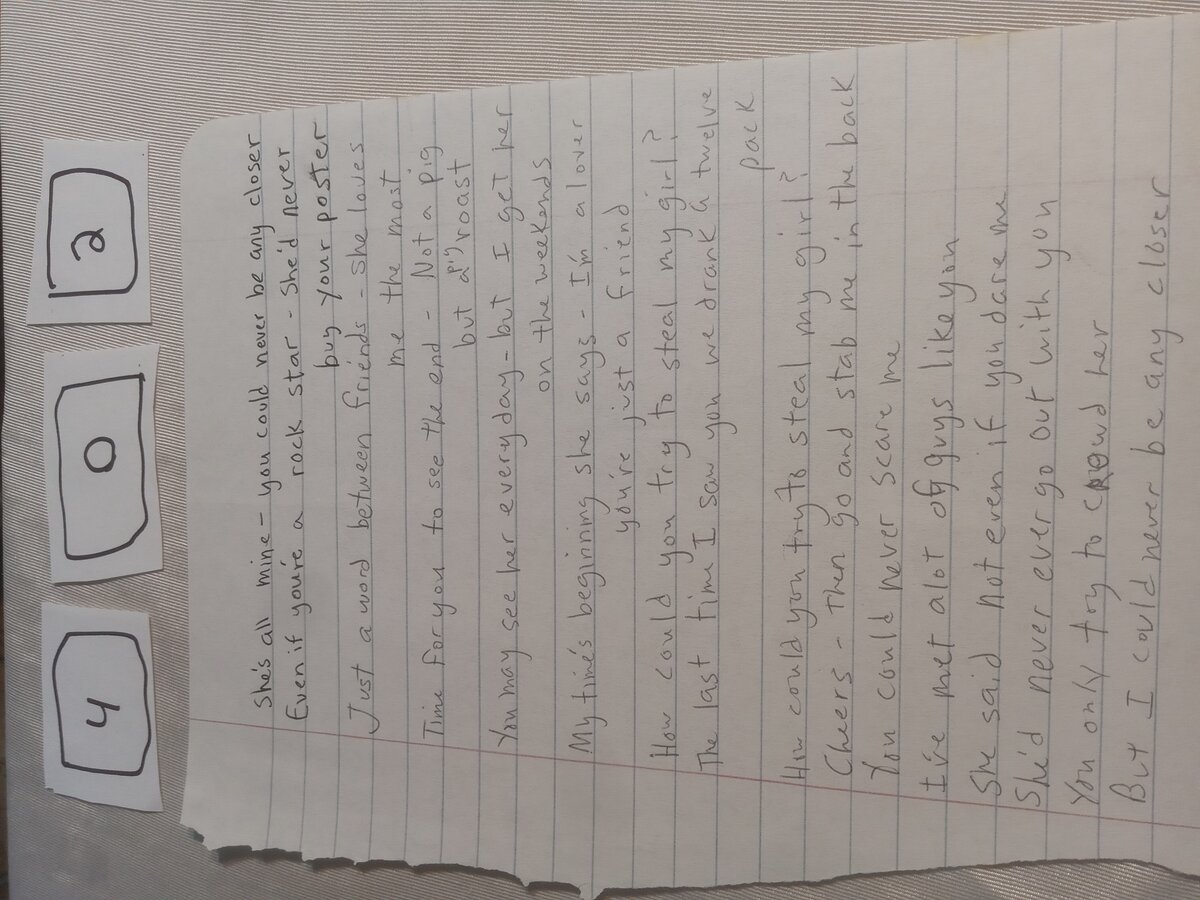 4 0 2
She's all mine - you could never be any closer
Even if you're a rock star - she'd never
buy your poster
Just a word between friends - she loves
me the most
Time for you to see the end - Not a pig
but a pig roast
You may see her everyday - but I get her
on the weekends
My time's beginning she says - I'm a lover
you're just a friend
How could you try to steal my girl?
The last time I saw you we drank a twelve
pack
How could you try to steal my girl?
Cheers - Then go and stab me in the back
You could never scare me
I've met alot of guys like you
She said not even if you dare me
She'd never ever go out with you
You only try to crowd her
But I could never be any closer